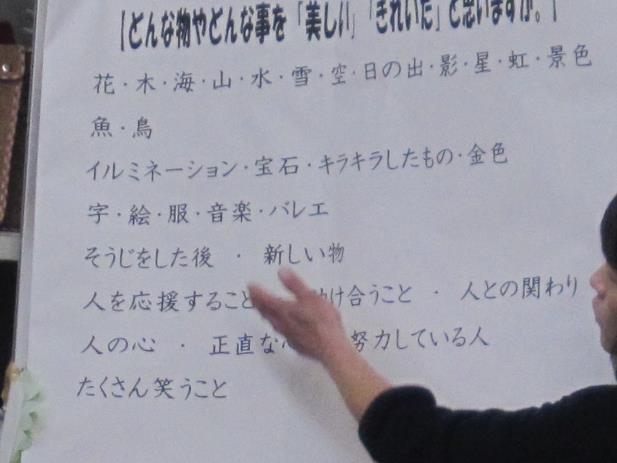 【どんな物やどんな事を「美しい」「きれいだ」と思いますか。】
花・木・海・山・水・雪・空・日の出・影・星・虹・景色
魚・鳥
イルミネーション・宝石・キラキラしたもの・金色
字・絵・服・音楽・バレエ
そうじをした後 ・ 新しい物
人を応援すること け合うこと ・ 人との関わり
人の心 ・ 正直な 努力している人
たくさん笑うこと